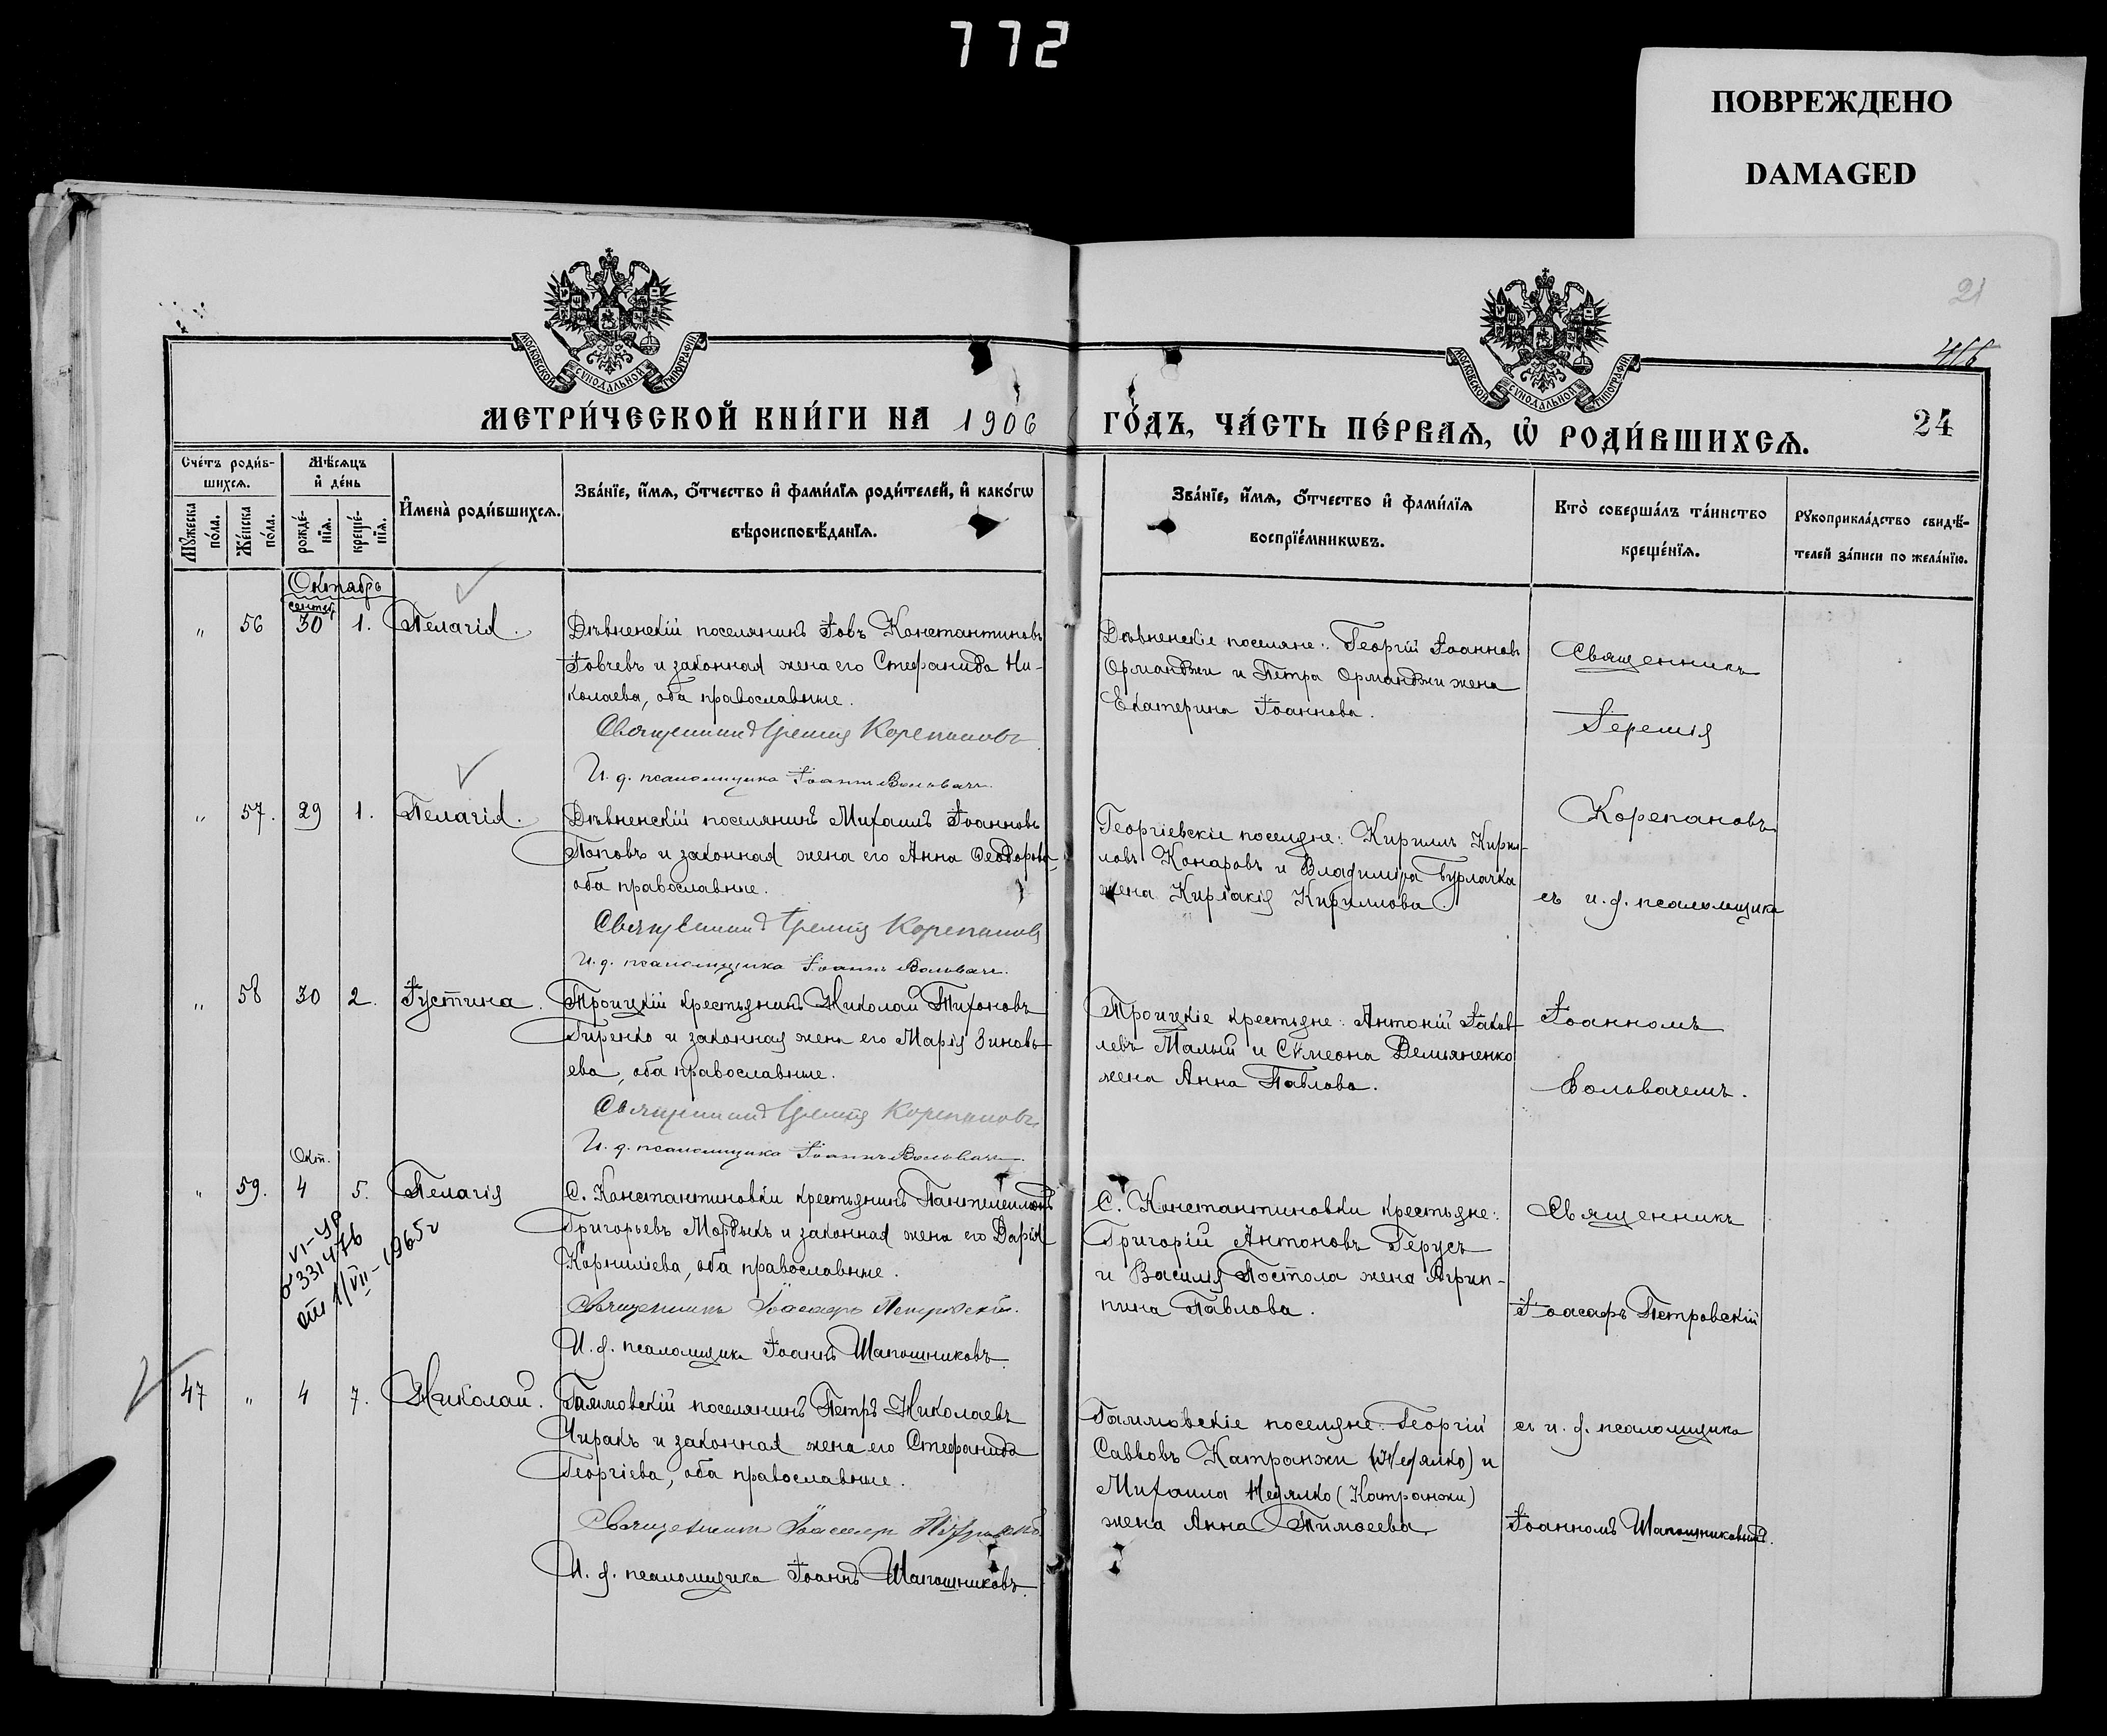 772
ПОВРЕЖДЕНО
DAMAGED
21
МОСКОВСКОЙ СУНОДАЛЬНОЙ ТИПОГРАФІИ
МОСКОВСКОЙ СУНОДАЛЬНОЙ ТИПОГРАФІИ
МЕТРИ́ЧЕСКОЙ КНИ́ГИ НА 1906 ГО́ДЪ, ЧА́СТЬ ПЕ́РВАѦ, Ѡ҆ РОДИ́ВШИХСѦ.
24
Сче́тъ роди́в-
шихсѧ.
Мѣ́сѧцъ
и҆ де́нь
Мꙋ́жеска
по́ла.
Же́нска
по́ла.
рожде́-
нїѧ.
креще́-
нїѧ.
И҆мена̀ роди́вшихсѧ.
Зва́нїе, и҆́мѧ, ѻ҆́тчество и҆ фами́лїѧ роди́телей, и҆ како́гѡ
вѣроисповѣ́данїѧ.
Зва́нїе, и҆́мѧ, ѻ҆́тчество и҆ фами́лїѧ
воспрїе́мникѡвъ.
Кто̀ соверша́лъ та́инство
креще́нїѧ.
Рꙋкоприкла́дство свидѣ́-
телей за́писи по жела́нїю.
Октябрь
сентяб
" 56 30 1. Пелагія.
Дѣвненскій поселянинъ Іовъ Константиновъ
Іовчевъ и законная жена его Стефанида Ни-
колаева, оба православные.
Священникъ Іеремія Корепановъ
И. д. псаломщика Іоаннъ Вольвачъ.
Дѣвненскіе поселяне: Георгій Іоанновъ
Орманджи и Петра Орманджи жена
Екатерина Іоаннова.
Священникъ
Іеремія
" 57. 29 1. Пелагія.
Дѣвненскій поселянинъ Михаилъ Іоанновъ
Поповъ и законная жена его Анна Ѳеодорова
оба православные.
Священникъ Іеремія Корепановъ
И. д. псаломщика Іоаннъ Вольвачъ.
Георгіевскіе поселяне: Кириллъ Кирил-
ловъ Конаровъ и Владиміра Бурлачка
жена Киріакія Кириллова.
Корепановъ
съ и. д. псаломщика
" 58 30 2. Іустина.
Троицкій крестьянинъ Николай Тихоновъ
Гиренко и законная жена его Марія Зиновь-
ева, оба православные.
Священникъ Іеремія Корепановъ
И. д. псаломщика Іоаннъ Вольвачъ.
Троицкіе крестьяне: Антоній Іаков-
левъ Малый и Сѵмеона Демьяненко
жена Анна Павлова.
Іоанномъ
Вольвачемъ.
Окт.
" 59. 4 5. Пелагія
VI-УР
331476
от 1/VII-1965г
С. Константиновки крестьянинъ Пантелеимонъ
Григорьевъ Мордыкъ и законная жена его Дарія
Корниліева, оба православные.
Священникъ Іоасафъ Петровскій.
И. д. псаломщика Іоаннъ Шапошниковъ.
С. Константиновки крестьяне:
Григорій Антоновъ Герусъ
и Василія Постола жена Агрип-
пина Павлова.
Священникъ
Іоасафъ Петровскій
47 " 4 7. Николай.
Гаммовскій поселянинъ Петръ Николаевъ
Чиракъ и законная жена его Стефанида
Георгіева, оба православные.
Священникъ Іоасафъ Петровскій
И. д. псаломщика Іоаннъ Шапошниковъ.
Гаммовскіе поселяне: Георгій
Савковъ Катранжи (Недялко) и
Михаила Недялко (Катранжи)
жена Анна Тимоѳеева
съ и. д. псаломщика
Іоанномъ Шапошниковымъ.